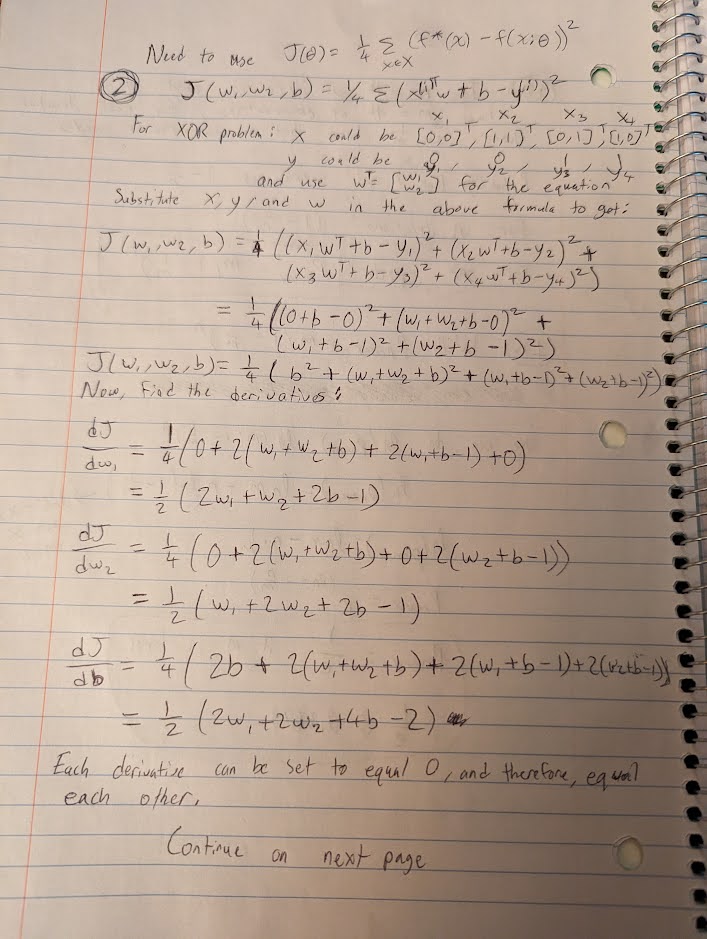 Need to use J(θ) = 1/4 Σ_{x∈X} (f*(x) - f(x;θ))²
② J(w₁,w₂,b) = 1/4 Σ(x^{(i)T}w + b - y^{(i)})²
x₁ x₂ x₃ x₄
For XOR problem: x could be [0,0]^T, [1,1]^T, [0,1]^T, [1,0]^T
0 0 1 1
y could be y₁, y₂, y₃, y₄
and use w^T = [w₁ w₂] for the equation
Substitute x, y, and w in the above formula to get:
J(w₁,w₂,b) = 1/4 ((x₁w^T+b-y₁)² + (x₂w^T+b-y₂)² +
(x₃w^T+b-y₃)² + (x₄w^T+b-y₄)²)
= 1/4 ((0+b-0)² + (w₁+w₂+b-0)² +
(w₁+b-1)² + (w₂+b-1)²)
J(w₁,w₂,b) = 1/4 (b² + (w₁+w₂+b)² + (w₁+b-1)² + (w₂+b-1)²)
Now, find the derivatives:
dJ/dw₁ = 1/4 (0 + 2(w₁+w₂+b) + 2(w₁+b-1) + 0)
= 1/2 (2w₁+w₂+2b-1)
dJ/dw₂ = 1/4 (0 + 2(w₁+w₂+b) + 0 + 2(w₂+b-1))
= 1/2 (w₁+2w₂+2b-1)
dJ/db = 1/4 (2b + 2(w₁+w₂+b) + 2(w₁+b-1) + 2(w₂+b-1))
= 1/2 (2w₁+2w₂+4b-2)
Each derivative can be set to equal 0, and therefore, equal
each other.
Continue on next page